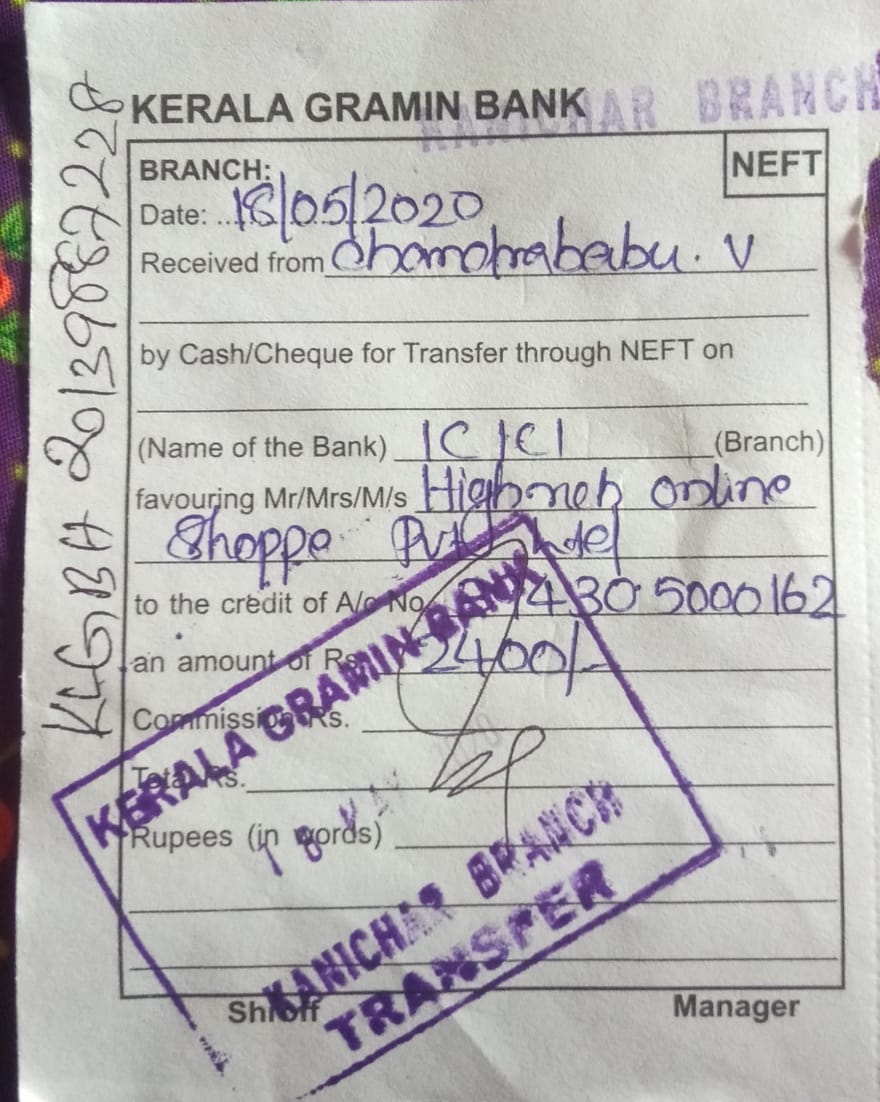 KERALA GRAMIN BANK
KANICHAR BRANCH
BRANCH:
NEFT
Date: ..18/05/2020
Received from Chandrababu. V
by Cash/Cheque for Transfer through NEFT on
(Name of the Bank) ICICI (Branch)
favouring Mr/Mrs/M/s Highrich online
Shoppe Pvt Ltd
to the credit of A/c No. 4305000162
an amount of Rs. 2400/-
Commission Rs.
Total Rs.
Rupees (in words)
Shroff Manager
KERALA GRAMIN BANK
18 MAY 2020
KANICHAR BRANCH
TRANSFER